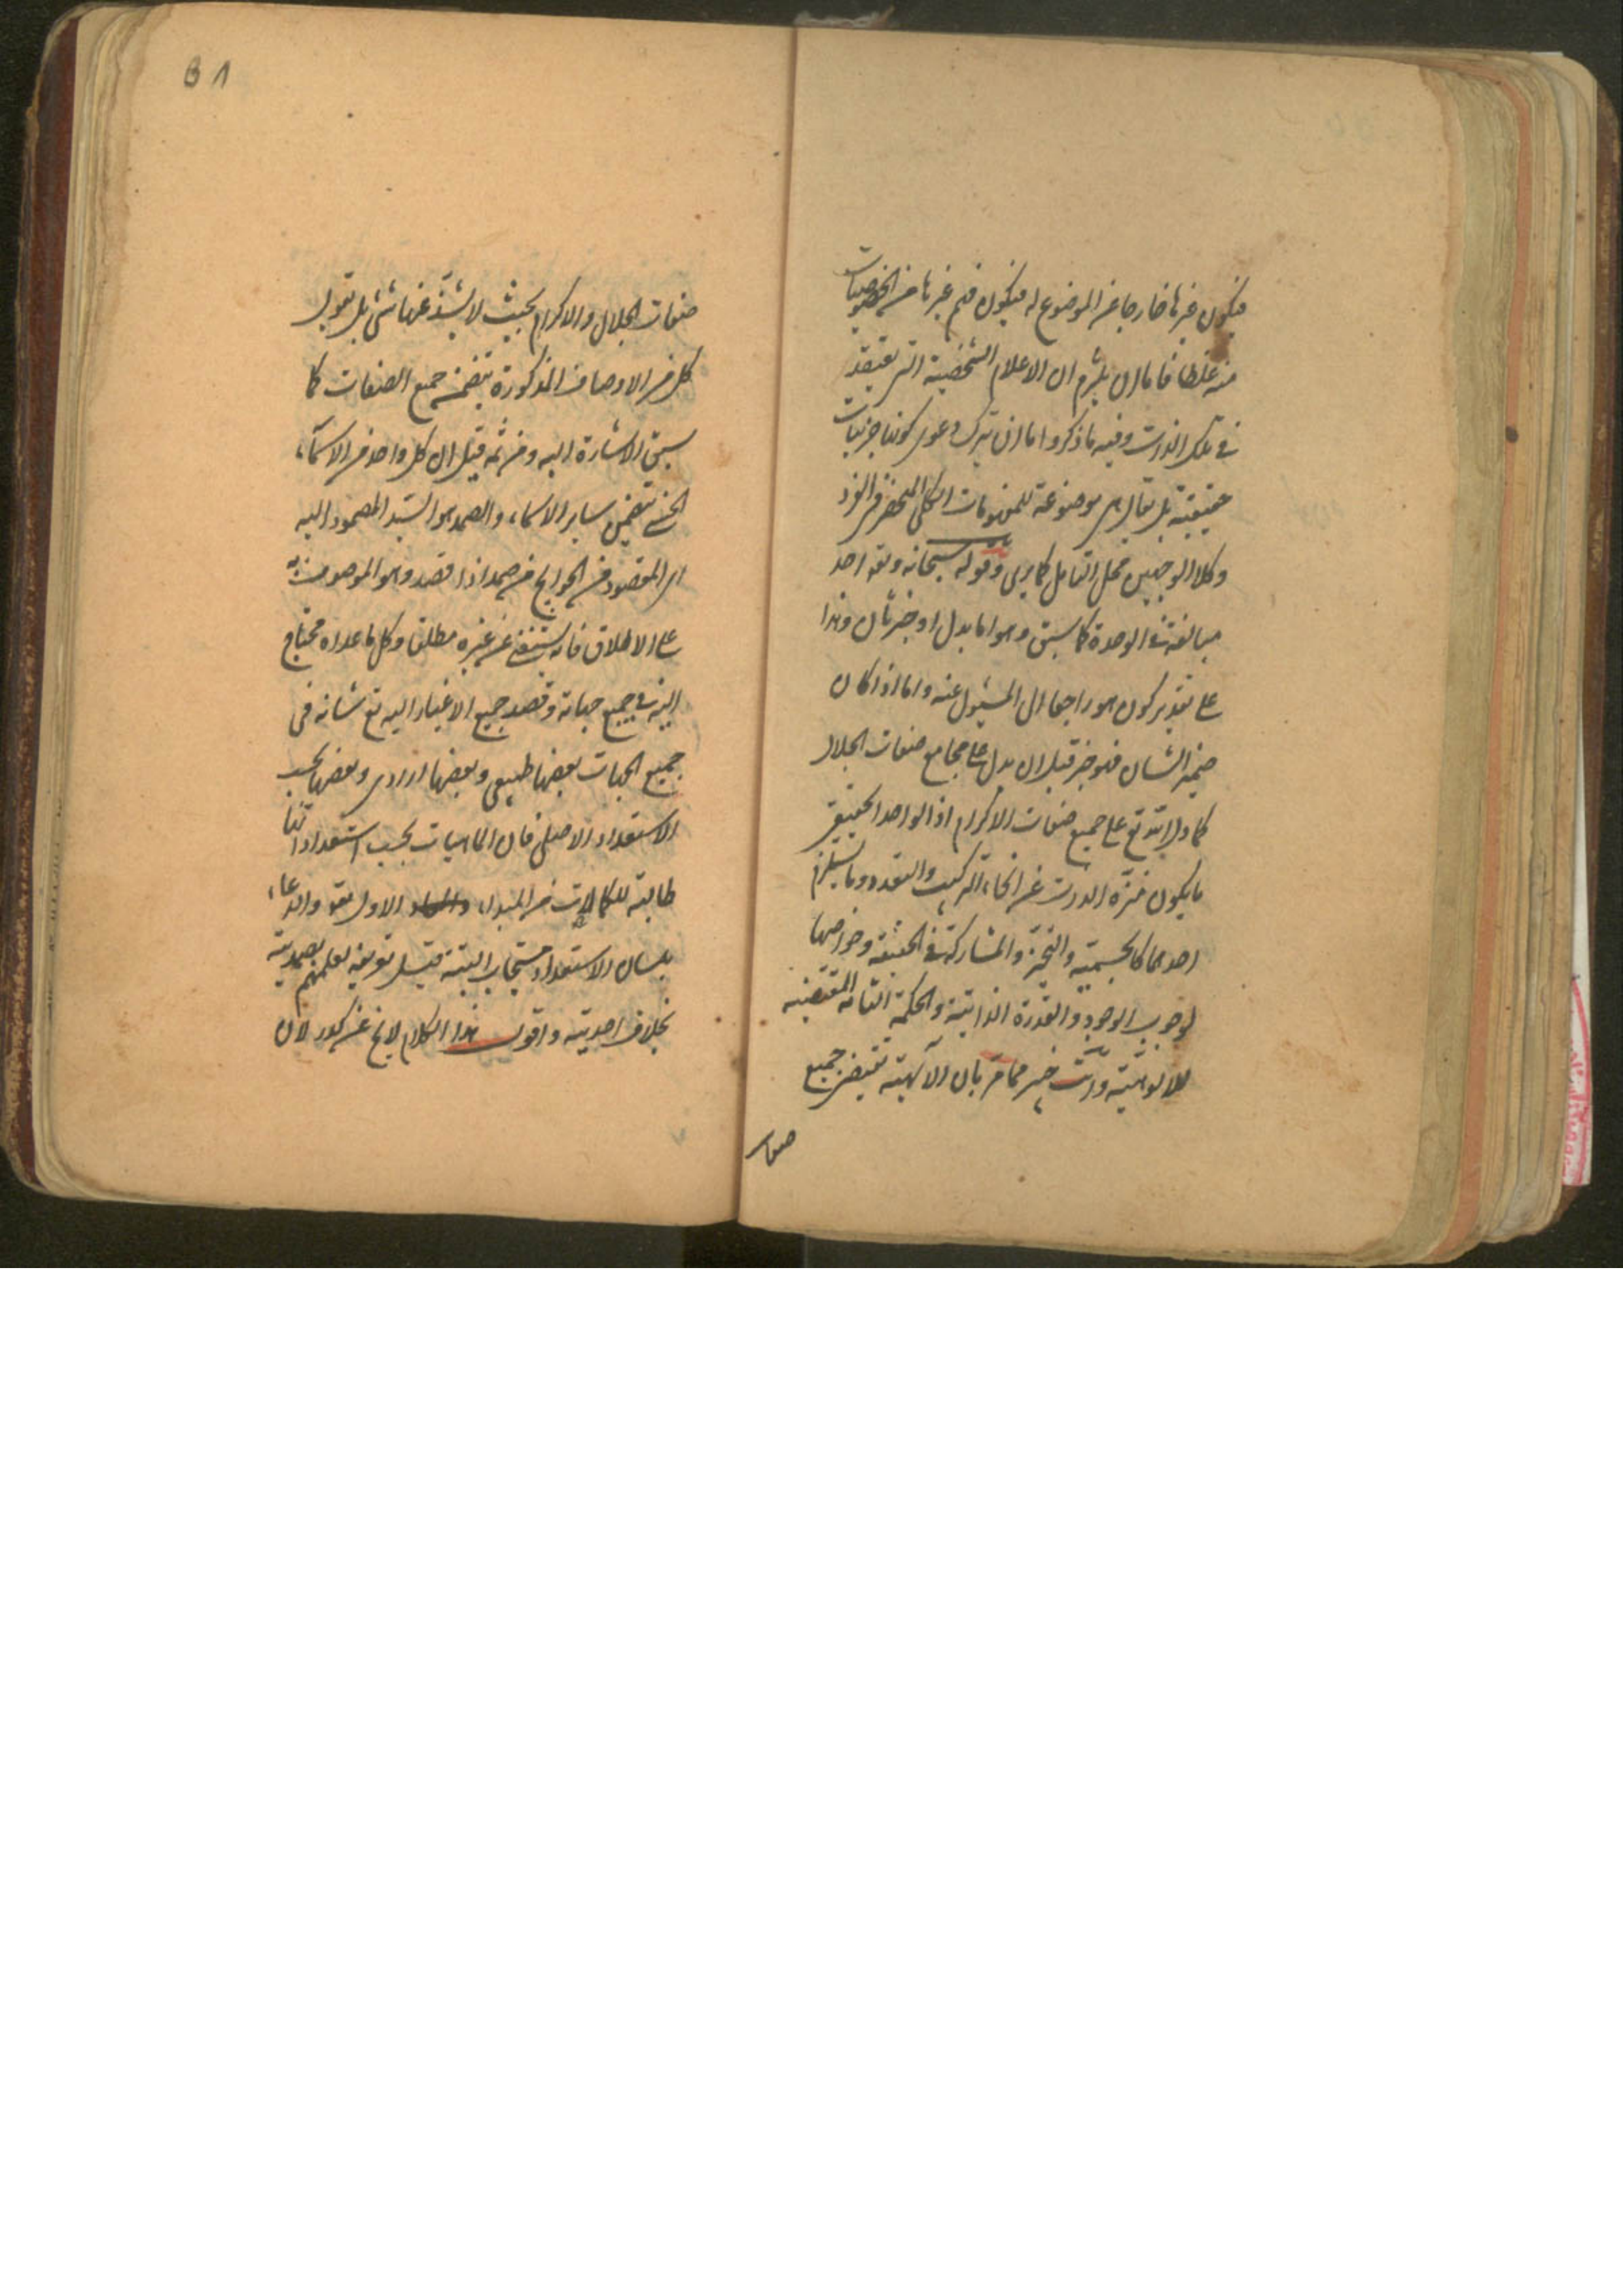 فيكون غيرها خارجا عن الموضوع له فيكون فهم غيرها من الخصوصيات
منه غلطا فاما ان يلتزم ان الاعلام الشخصية التى يعتقد
فى تلك الذات وفيه ما ذكروا اما ان يترك دعوى كونها جزئيات
حقيقية بل يقال هى موضوعة للمفهومات الكلى المنحصر فى الفرد
وكلا الوجهين محل التامل كما يرى وقوله سبحانه وتع احد
مبالغة فى الوحدة كما سبق وهو اما بدل او خبر ثان وهذا
على تقدير كون هو راجعا الى المسئول عنه واما اذا كان
ضمير الشان فهو خبر قيل ان يدل على مجامع صفات الجلال
كما دل الله تع على جميع صفات الاكرام اذ الواحد الحقيقى
ما يكون منزه الذات عن انحاء التركيب والتعدد وما يستلزم
احدهما كالجسمية والتحيز والمشاركة فى الحقيقة وخواصها
لوجوب الوجود والقدرة الذاتية والحكمة التامه المقتضيه
للالوهية وانت خبير مما مر بان الالهية تقتضى جميع
صفات
81
صفات الجلال والاكرام بحيث لا يشذ عنها شئ بل نقول
كل من الاوصاف المذكورة يتضمن جميع الصفات كما
سبق الاشارة اليه ومن ثمه قيل ان كل واحد من الاسماء
الحسنى تتضمن ساير الاسماء والصمد هو السيد المصمود اليه
اى المقصود فى الحوايج من صمد اذا قصد وهو الموصوف به
على الاطلاق فانه يستغنى عن غيره مطلقا وكل ما عداه محتاج
اليه فى جميع جهاته وقصد جميع الاغيار اليه تع شانه فى
جميع الجهات بعضها طبيعى وبعضها ارادى وبعضها بحسب
الاستعداد الاصلى فان الماهيات بحسب استعداداتها
طالبة للكمالات من المبدء الاول تعو والدعاء
بلسان الاستعداد مستجاب البتة قيل تعريفه لعلمهم بصمديته
بخلاف احديته واقول هذا الكلام لا يخ عن كدر لان